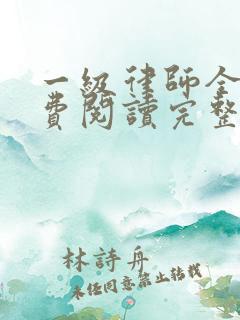 一級律師全
費閱讀完整
林詩舟
未經同意禁止轉載